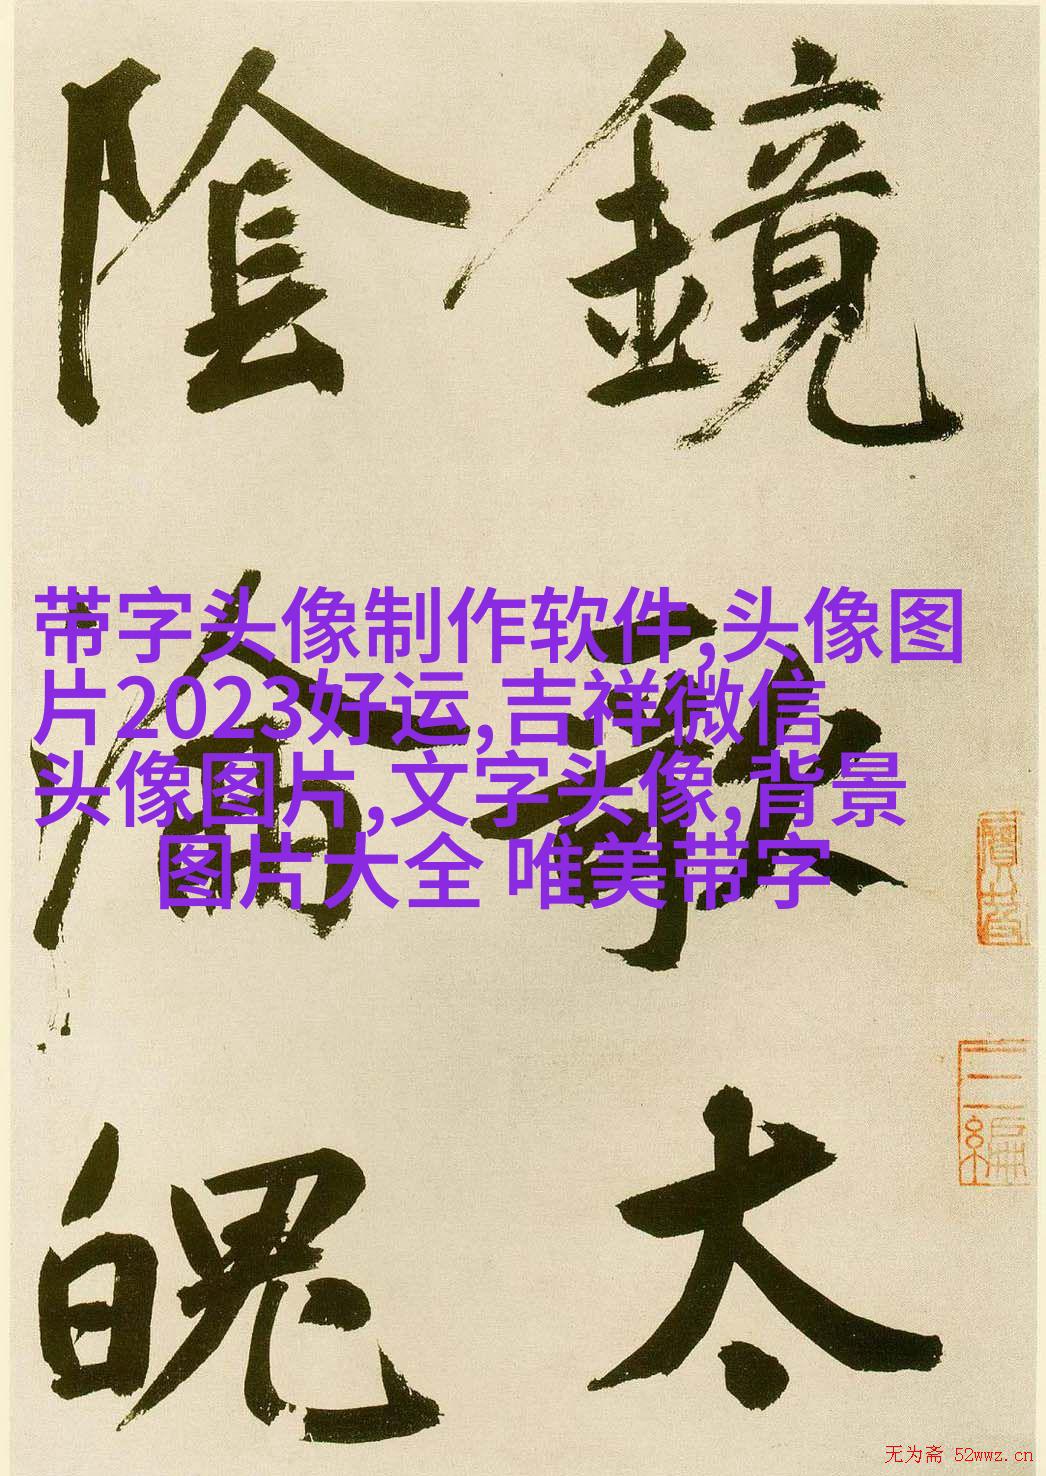 鏡
太
陰
魄
带字头像制作软件,头像图
片2023好运,吉祥微信
头像图片,文字头像,背景
图片大全 唯美带字
无为斋 52wwz.cn